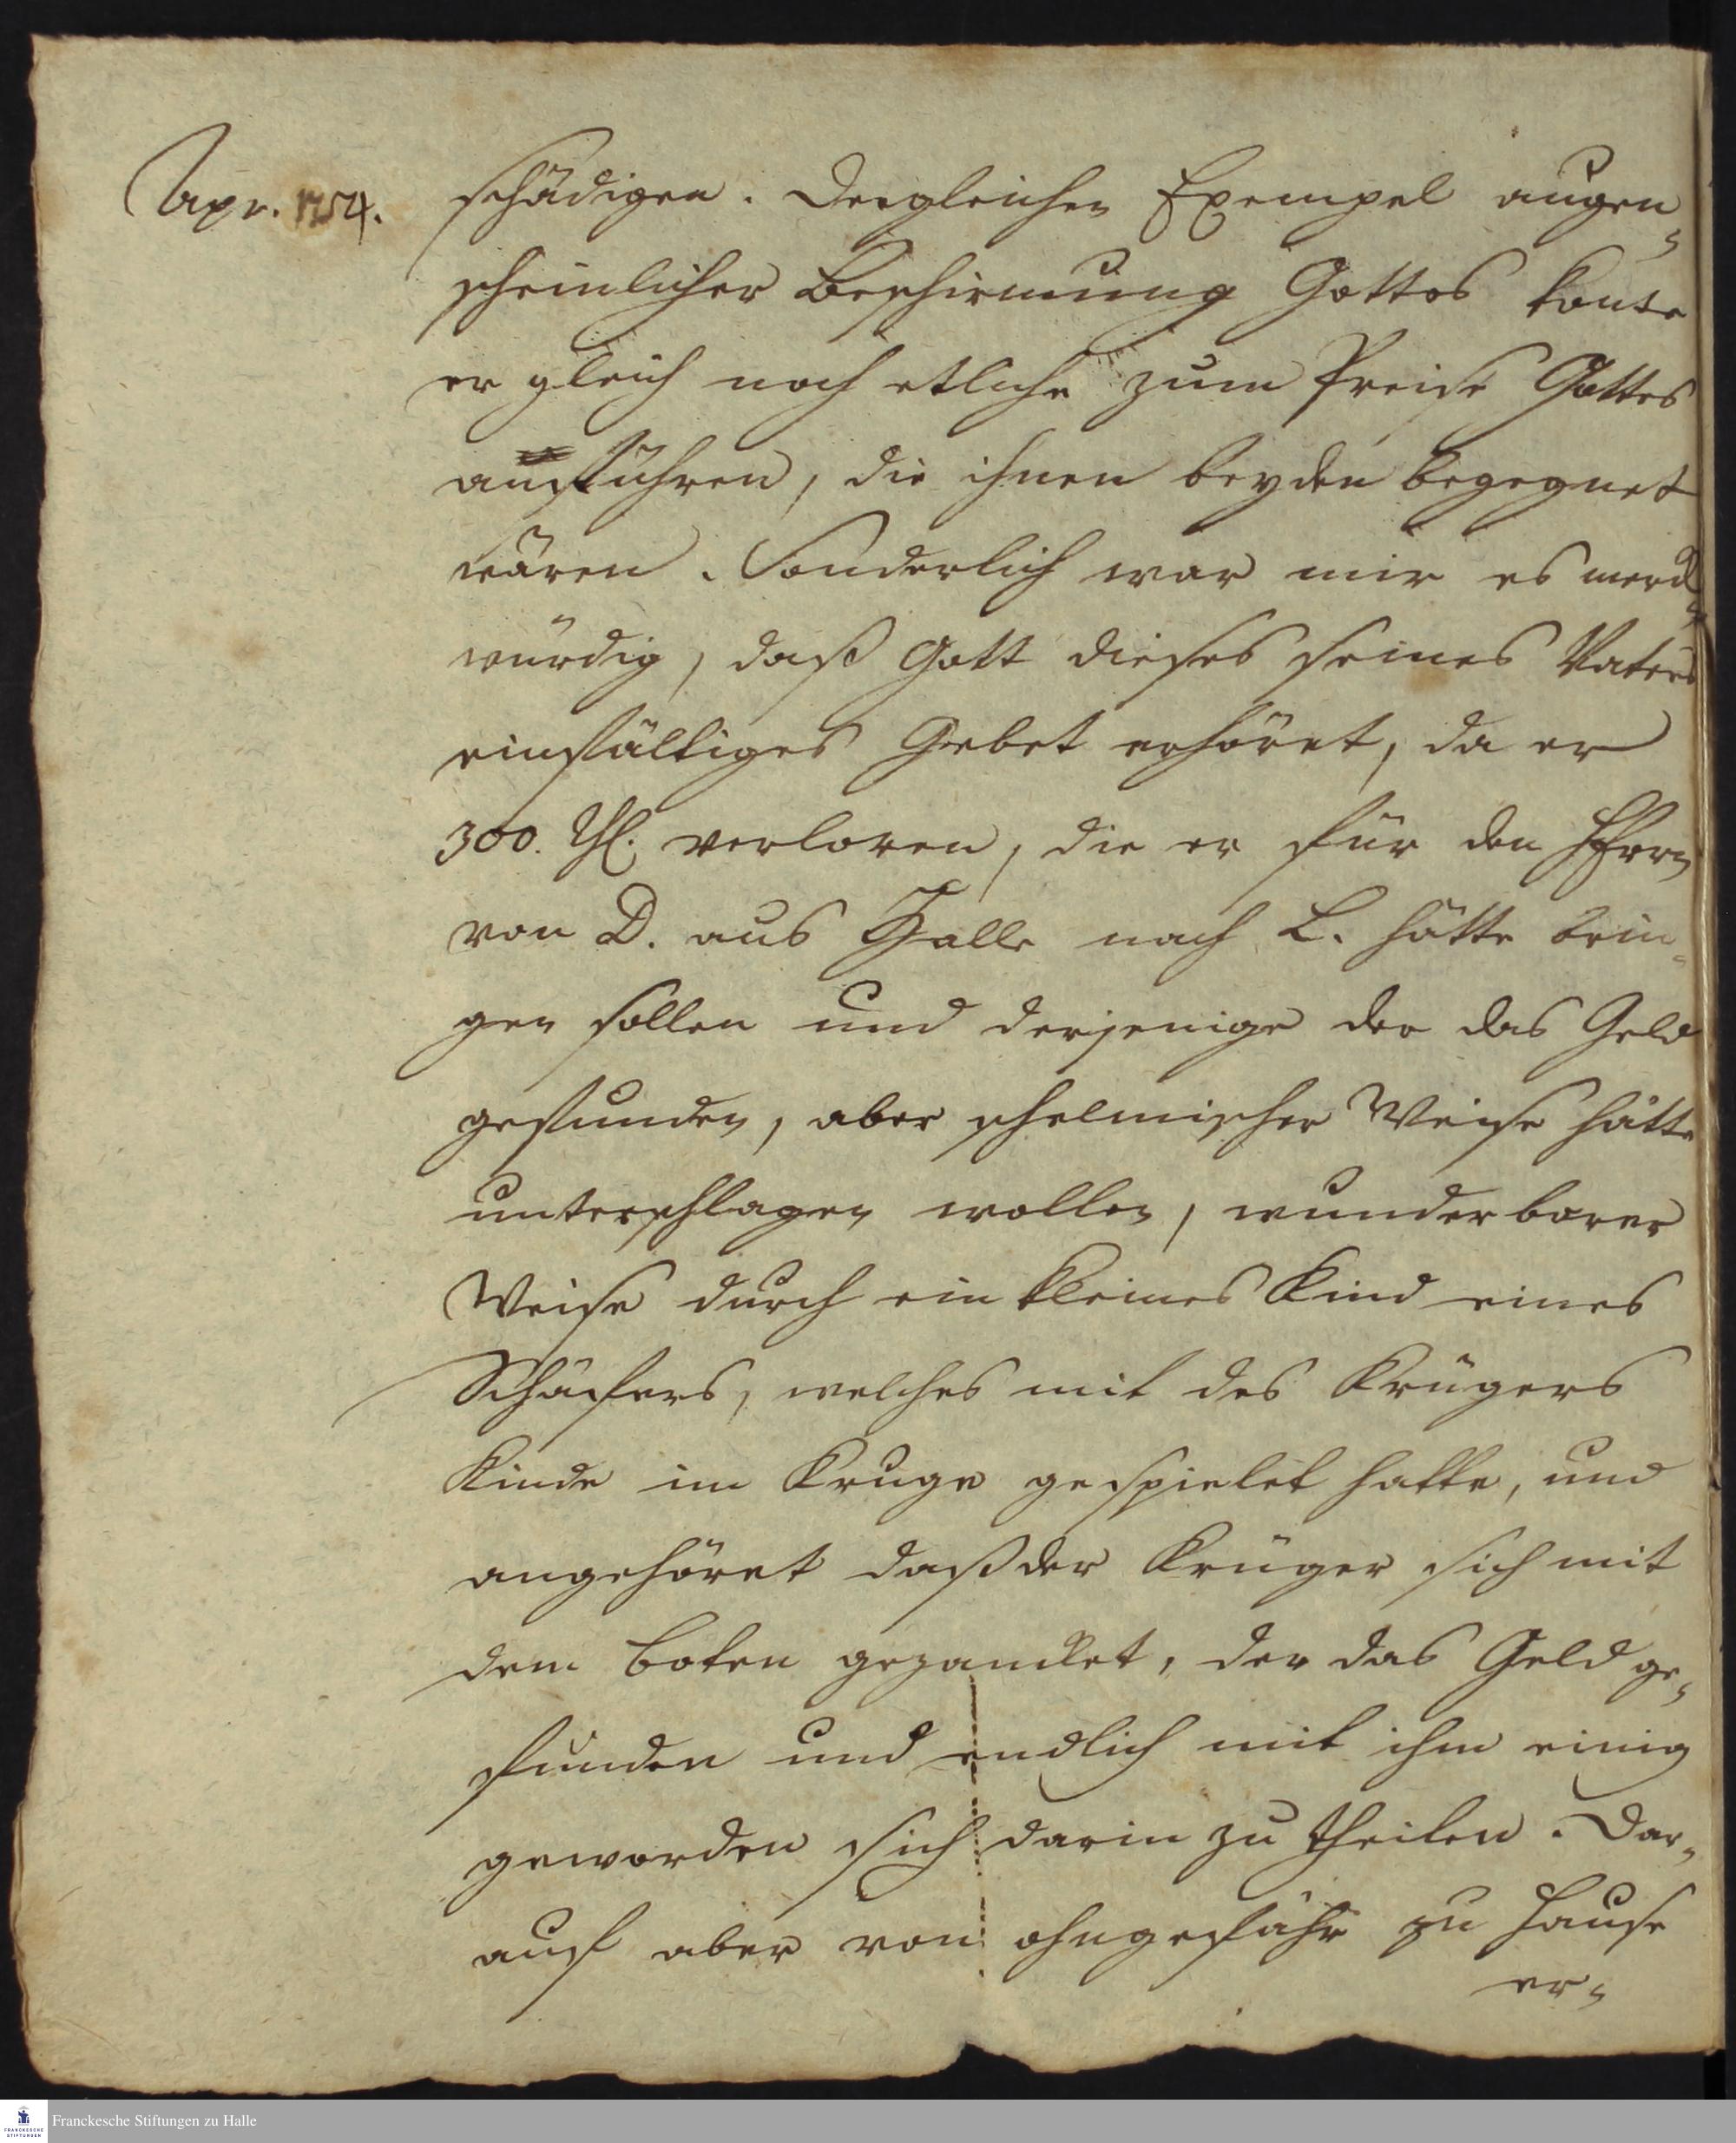 Apr. 1754.
schädigen. Dergleichen Exempel augen-
scheinlicher Beschirmung Gottes konte
er gleich noch etliche zum Preise Gottes
anführen, die ihnen beyden begegnet
wären. Sonderlich war mir es merck-
würdig, daß Gott dieses seines Vaters
einfältiges Gebet erhöret, da er
300. Thl. verloren, die er für den Hherrn
von D. aus Halle nach L. hätte brin-
gen sollen und derjenige der das Geld
gefunden, aber schelmischer Weise hätte
unterschlagen wollen, wunderbarer
Weise durch ein kleines Kind eines
Schäfers, welches mit des Krügers
Kinde im Kruge gespielet hatte, und
angehöret daß der Krüger sich mit
dem Boten gezancket, der das Geld ge-
funden und endlich mit ihm einig
geworden sich darin zu theilen. Dar-
auf aber von ohngefähr zu Hause
er-
Franckesche Stiftungen zu Halle
FRANCKESCHE
STIFTUNGEN